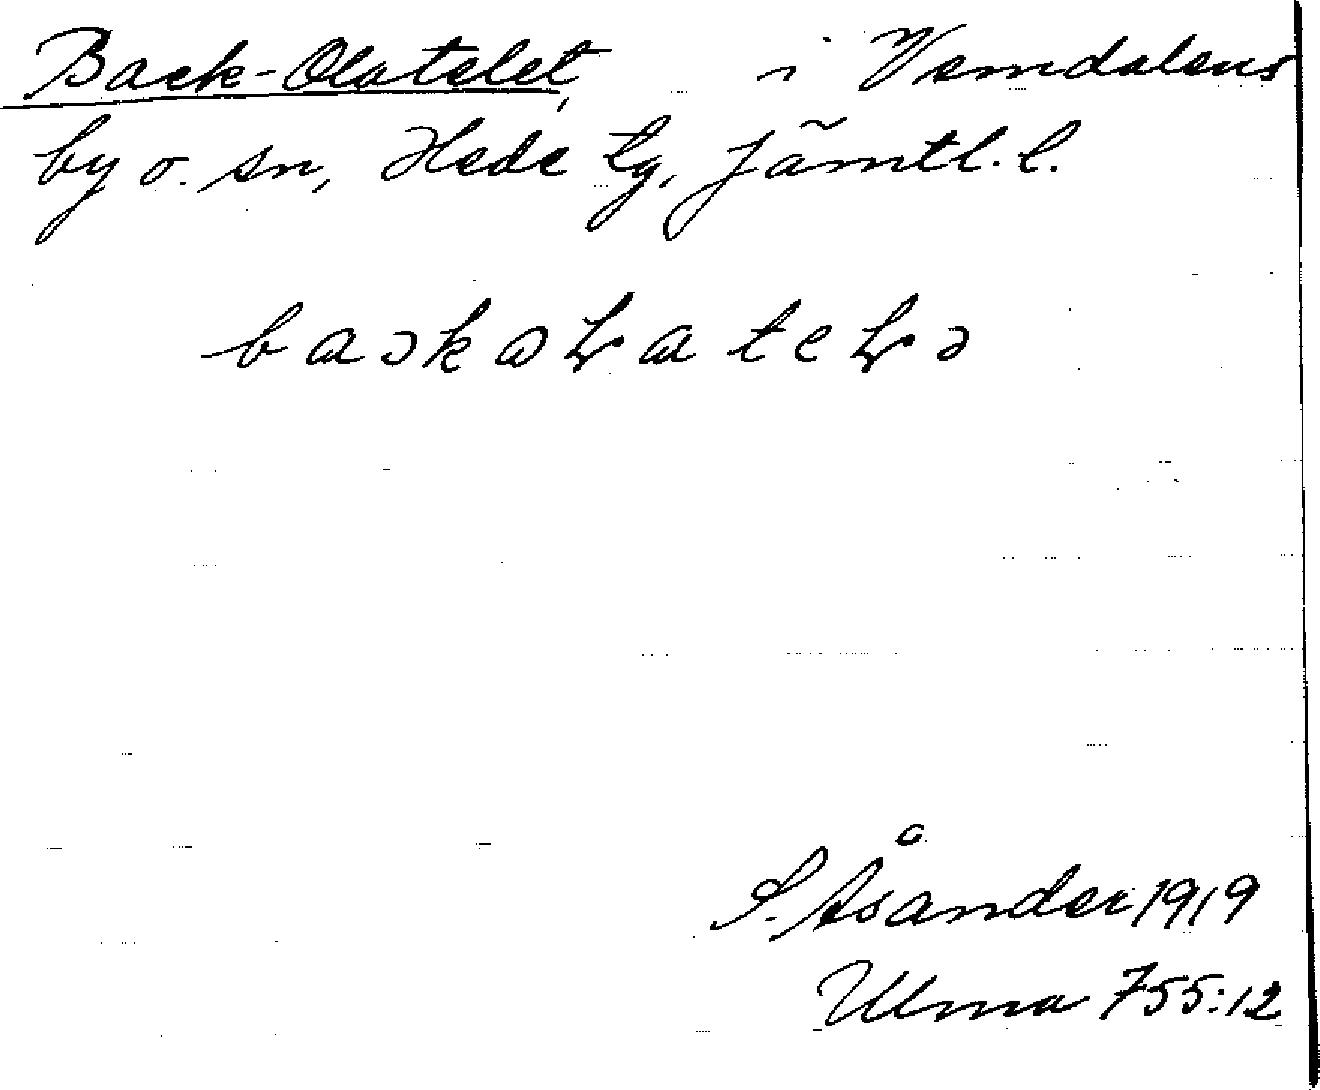 Back-Olatelet, i Vemdalens
by o. sn, Hede tg, Jämtl. l.
S. Åsander 1919
Ulma 755:12